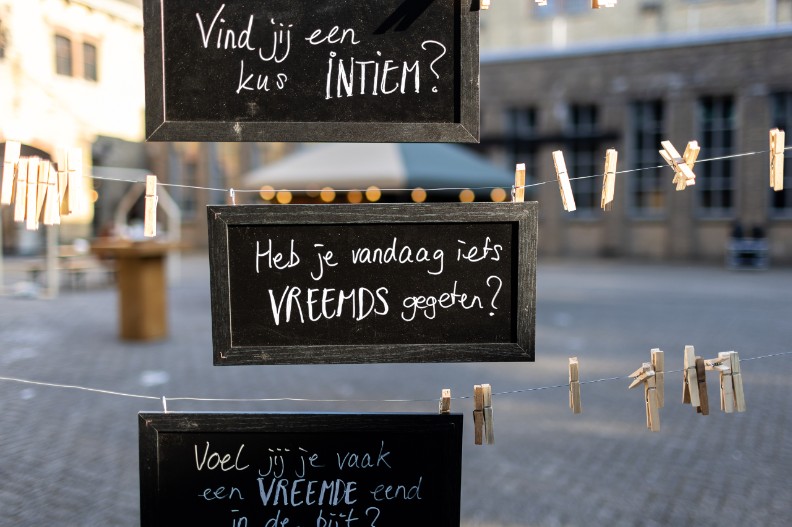 Vind jij een
kus INTIEM?
Heb je vandaag iets
VREEMDS gegeten?
Voel jij je vaak
een VREEMDE eend
in de bijt?